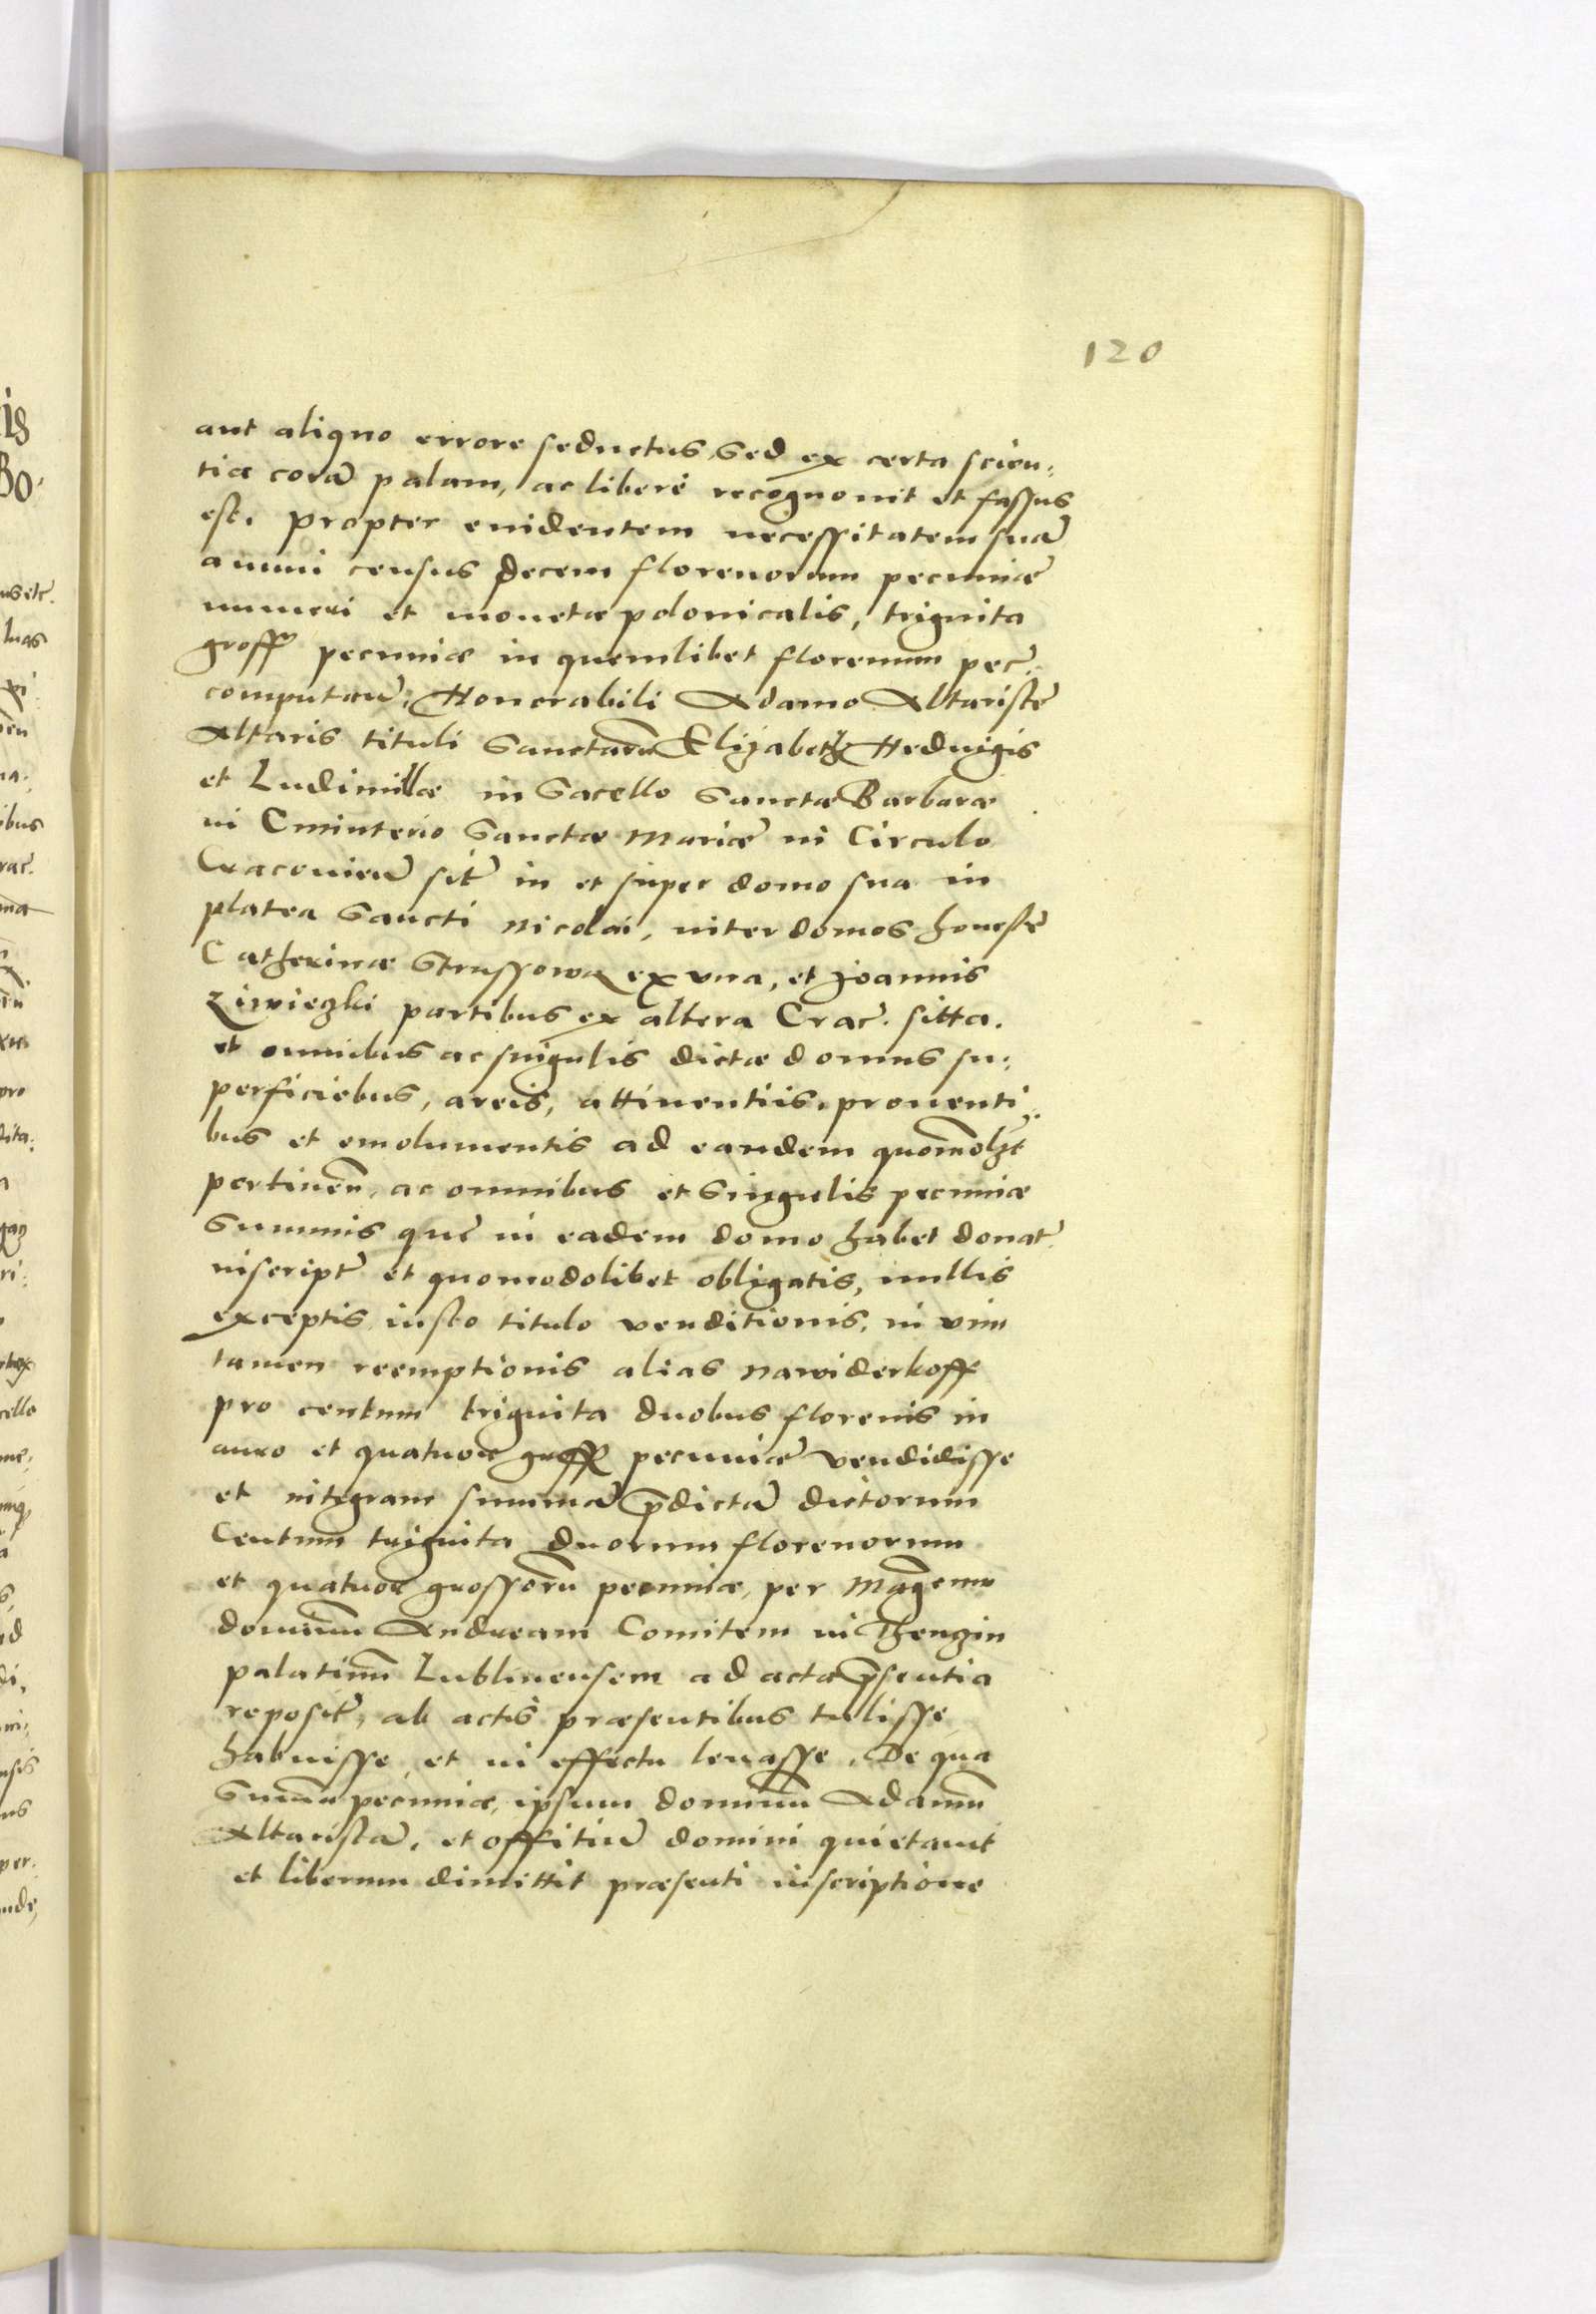 120
aut aliquo errore seductus, Sed ex certa scien:
tia corā palam, ac liberè recognouit et fassus
est. propter euidentem necessitatem suā
annui census decem florenorum pecuniæ
numeri et monetæ polonicalis, triginta
gross pecuniæ in quemlibet florenum pec.
computan̄, Honorabili Adamo Altaristæ
Altaris tituli Sanctarū Elizabeth Heduigis
et Ludimillæ in Sacello Sanctæ Barbaræ
in Cminterio Sanctæ Mariæ in Circulo
Cracouien̄ sit̄ in et super domo sua in
platea Sancti Nicolai, inter domos honestæ
Catherinæ Strussowa ex vna, et Joannis
Ziwiezki partibus ex altera Crac. sitta.
et omnibus ac singulis dictæ domus su:
perficiebus, areis, attinentiis, prouenti:
bus et emolumentis ad eandem quomōlꝫt
pertinen̄, ac omnibus et Singulis pecuniæ
Summis quæ in eadem domo habet donat̄
inscript̄ et quomodolibet obligatis, nullis
exceptis iusto titulo venditionis, in vim
tamen reemptionis alias nawiderkoff
pro centum triginta duobus florenis in
auro et quatuor gross pecuniæ vendidisse
et integram summā p̄dictā dictorum
Centum triginta duorum florenorum
et quatuor grossorū pecuniæ, per Mag̅cum
dominum Andream Comitem in Thenzin
palatinū Lublinensem ad acta p̄sentia
reposit̄, ab actis præsentibus tulisse
habuisse, et in effectu leuasse. De qua
Summa pecuniæ, ipsum dominū Adamū
Altaristā, et offitiū domini quietauit
et liberum dimittit præsenti inscriptione